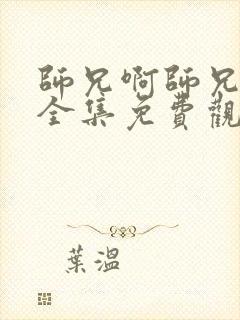 師兄啊師兄
全集免費觀
葉溫